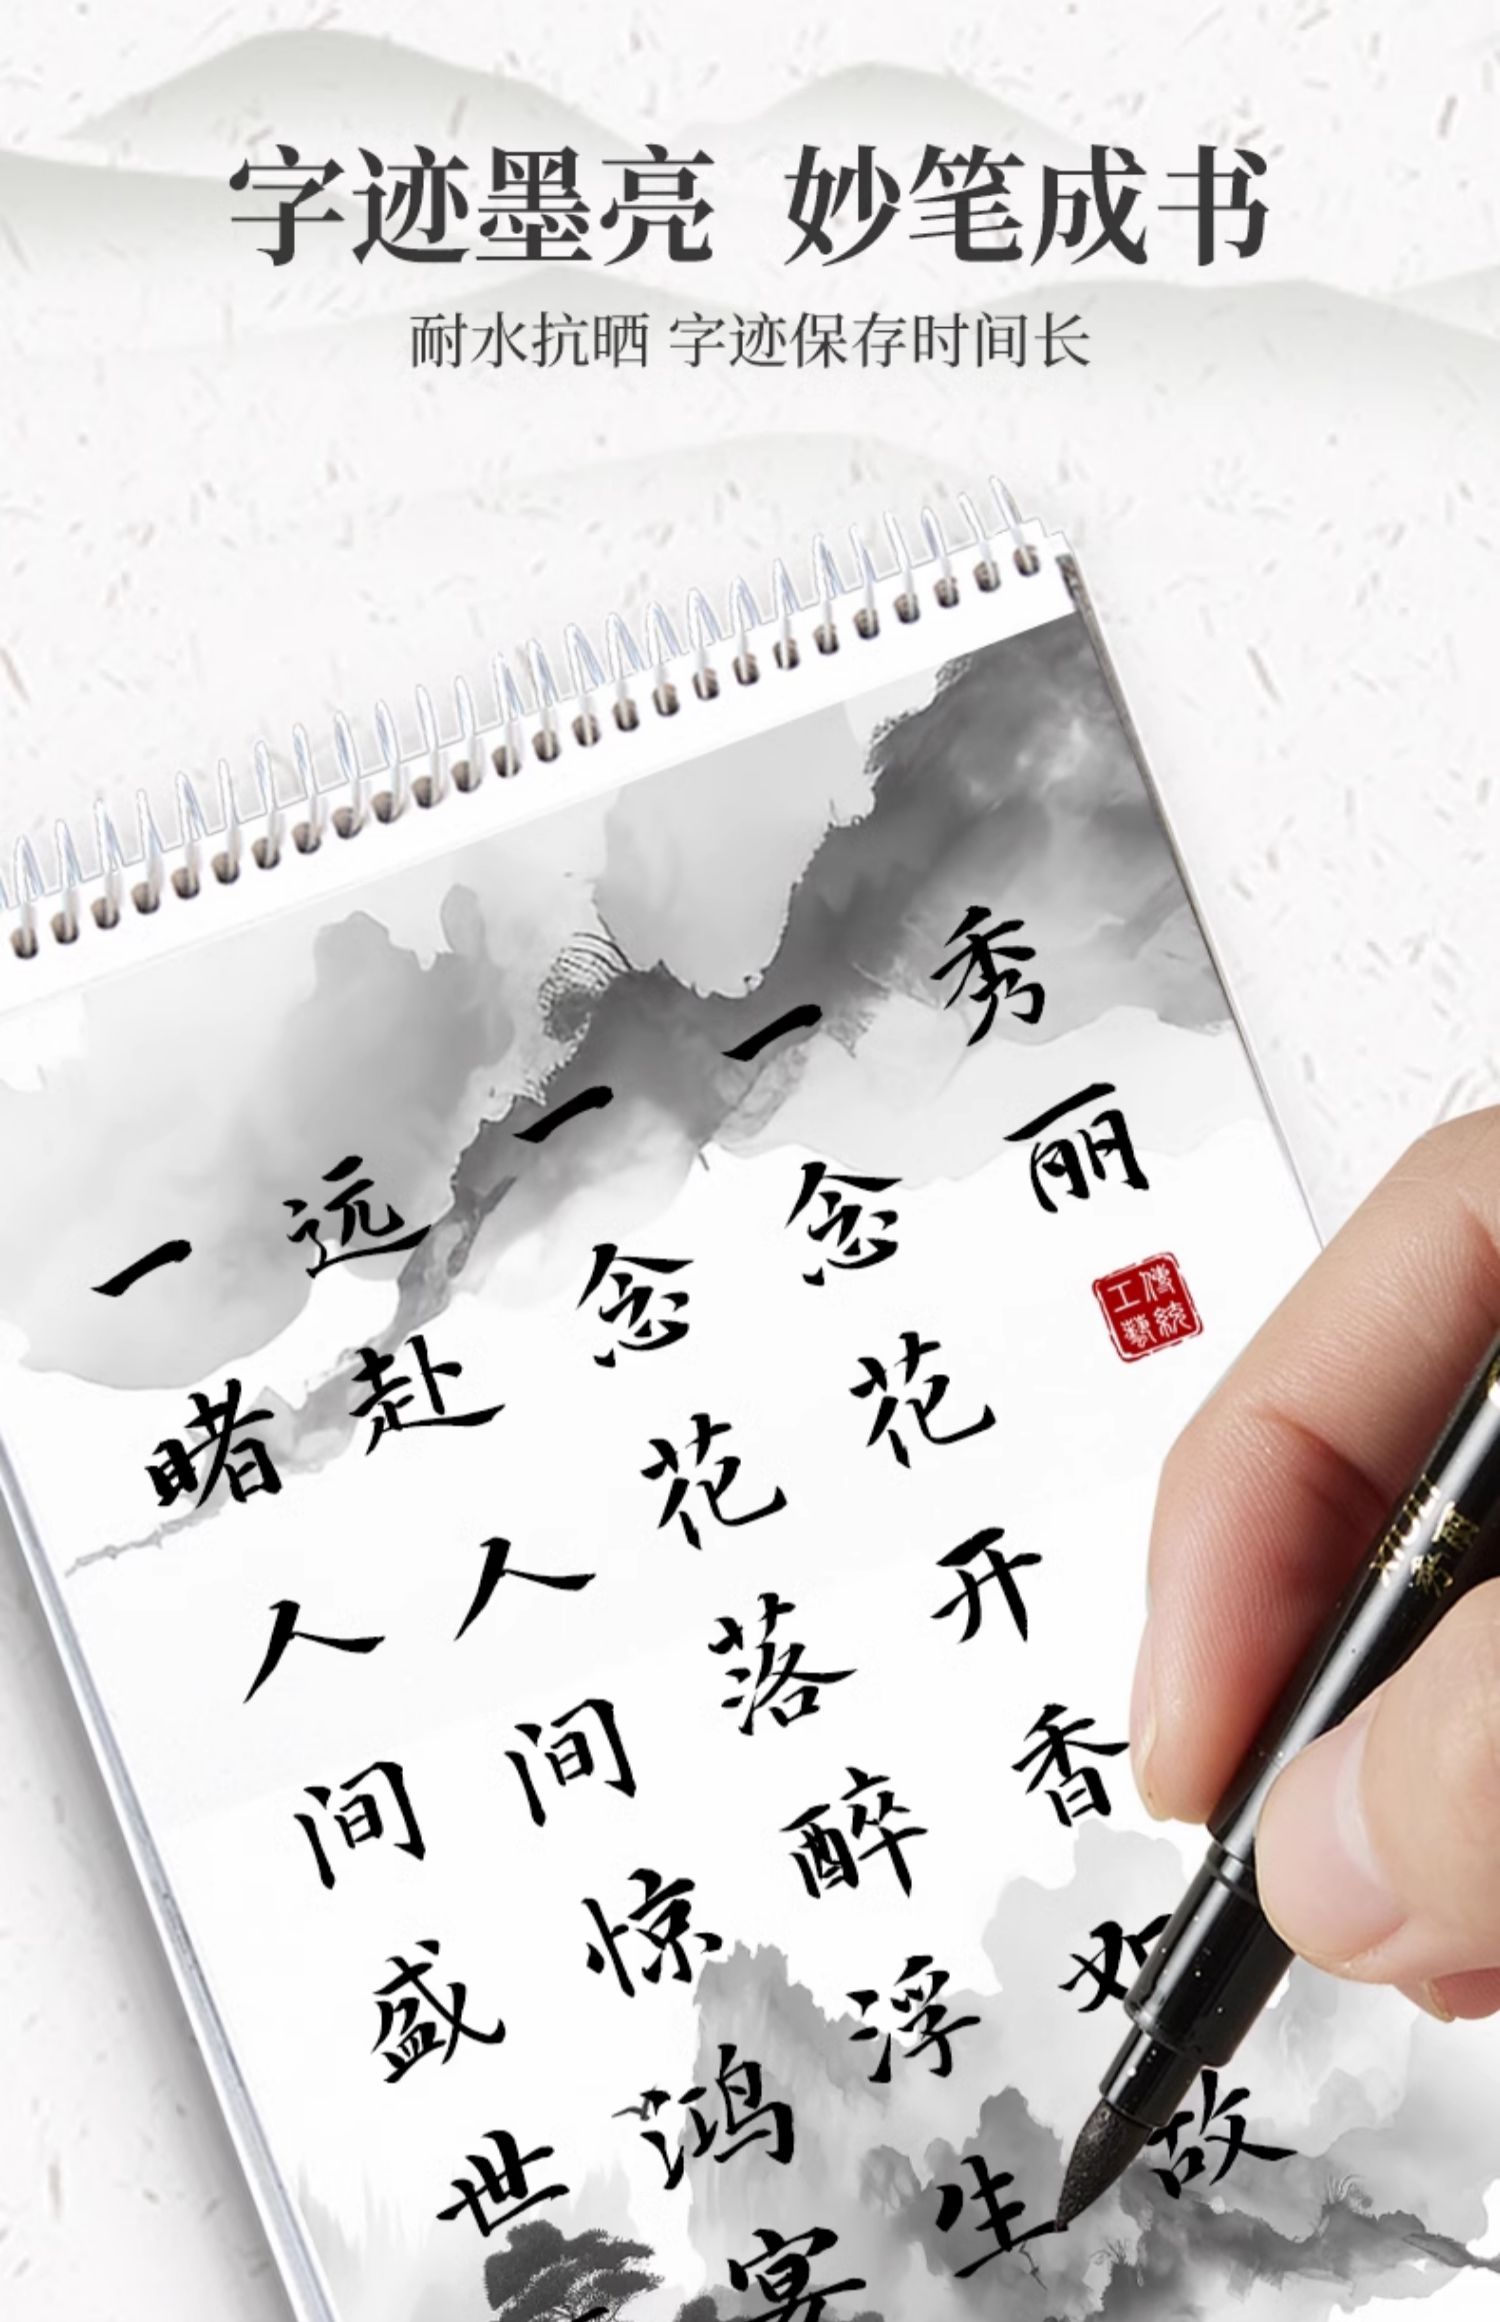 字迹墨亮 妙笔成书
耐水抗晒 字迹保存时间长
秀丽
傳統工藝
一念花开香如故
一念花落醉浮生
远赴人间惊鸿宴
一睹人间盛世